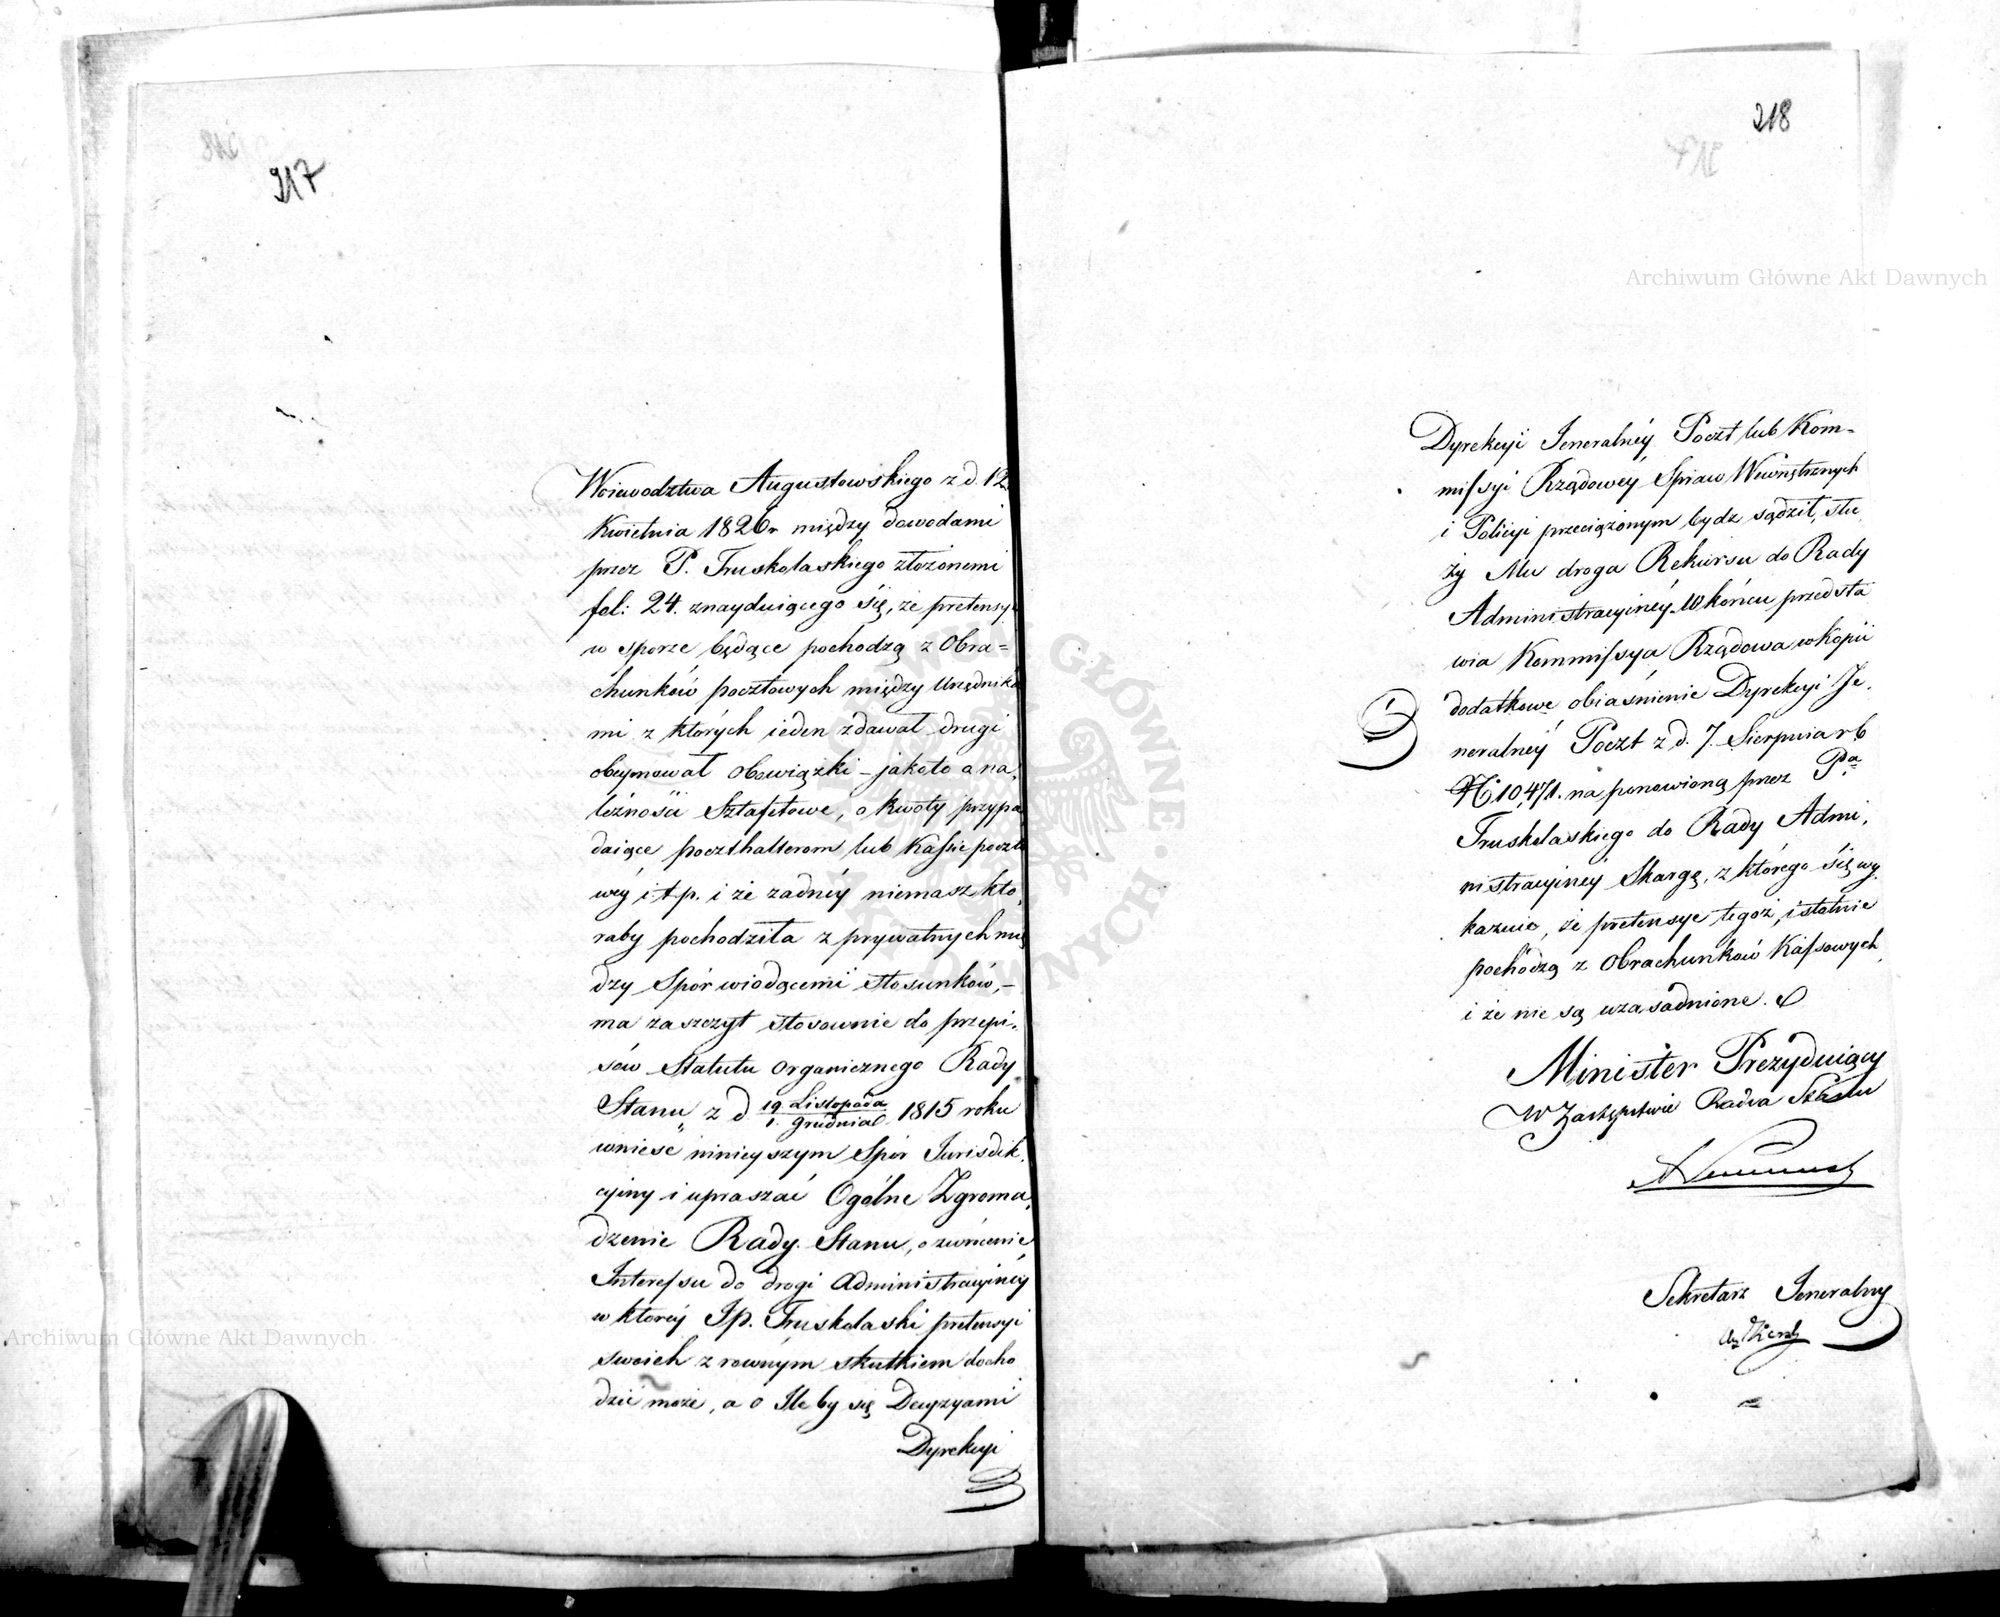 217
Woiewodztwa Augustowskiego z d. 12
Kwietnia 1826r między dowodami
przez P. Truskolaskiego złożonemi
fol: 24. znayduiącego się, że pretensye
w sporze będące pochodzą z Obra=
chunków pocztowych między Urzędnika
mi z których ieden zdawał drugi
obeymował obowiązki – jakoto a na,
leżności Sztafetowe, o kwoty przypa
daiące poczthalterom lub Kassie poczto
wéy i t.p. i że żadnéy niemasz któ,
raby pochodziła z prywatnych mię
dzy Spór wiodącemi stosunków, –
ma zaszczyt stosownie do przepi,
sów Statutu organicznego Rady
Stanu z d 19 Listopada / 1. Grudnia 1815 roku
wnieść ninieyszym Spór Jurisdik,
cyiny i upraszać Ogólne Zgroma,
dzenie Rady Stanu, o zwrócenie
Interessu do drogi administracyinéy
w któréy Jp. Truskolaski pretensyi
swoich z równym skutkiem docho
dzić może, a o Ile by się Decyzyami
Dyrekcyi
218
Archiwum Główne Akt Dawnych
Dyrekcyi Jeneralnéy Poczt lub Kom=
missyi Rządowéy Spraw Wewnętrznych
i Policyi przeciążonym bydź sądził, słu
ży Mu droga Rekursu do Rady
Administracyinéy. W końcu przedsta
wia Kommissya Rządowa w Kopii
dodatkowe obiaśnienie Dyrekcyi Je,
neralnéy Poczt z d. 7. Sierpnia rb
N 10,471. na ponowioną przez Pa
Truskolaskiego do Rady Admi,
nistracyinéy Skargę, z którego się wy,
kazuie, że pretensye tegoż, istotnie
pochodzą z Obrachunków Kassowych,
i że nie są uzasadnione.
Minister Prezyduiący
W Zastępstwie Radca Stanu
Sekretarz Jeneralny
Archiwum Główne Akt Dawnych
ARCHIWUM GŁÓWNE AKT DAWNYCH